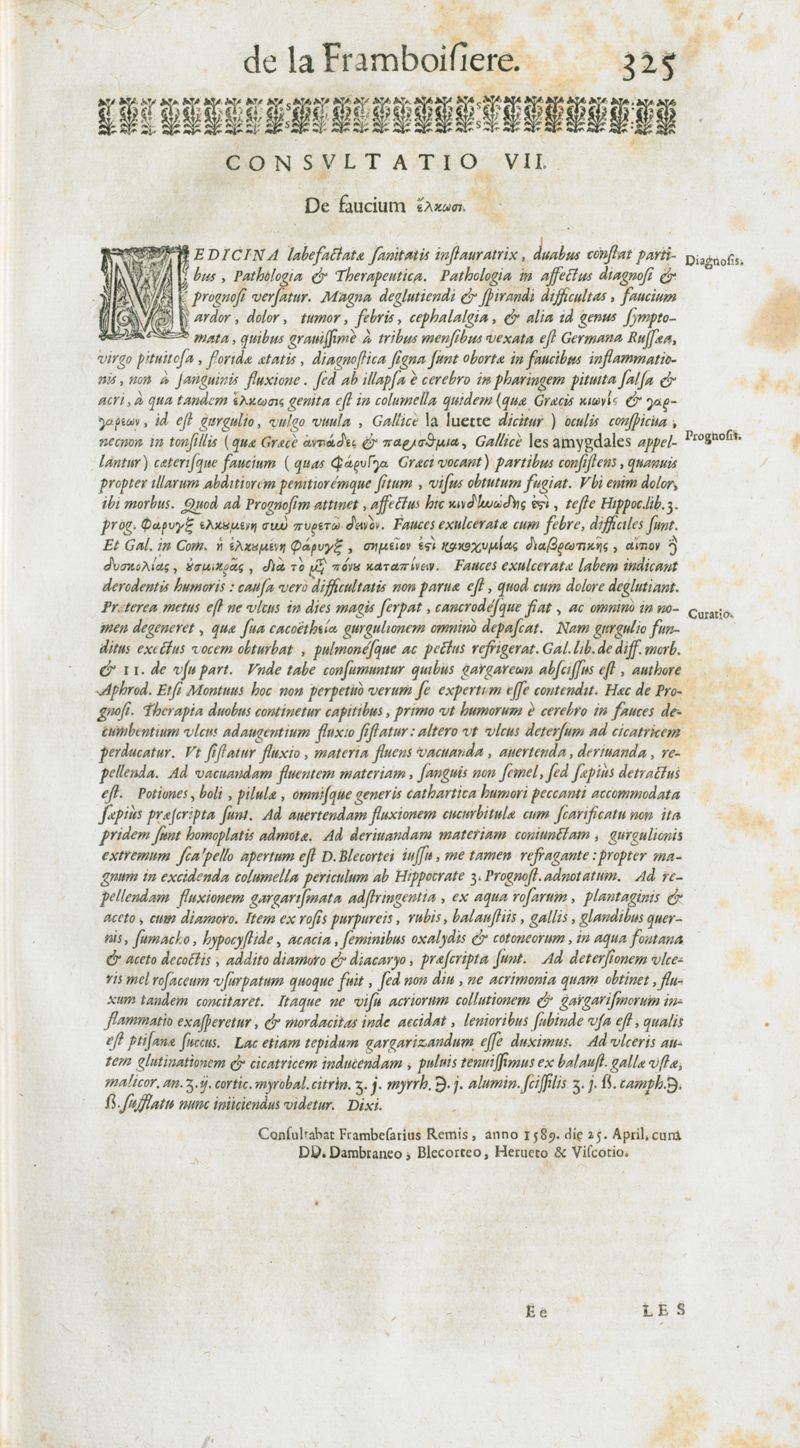 de la Framboiſiere. 325
CONSVLTATIO VII.
De faucium ἕλκωσι.
MEDICINA labefactatæ ſanitatis inſtauratrix, duabus conſtat parti-
Diagnoſis.
bus, Pathologia & Therapeutica. Pathologia in affectus diagnoſi &
prognoſi verſatur. Magna deglutiendi & ſpirandi difficultas, faucium
ardor, dolor, tumor, febris, cephalalgia, & alia id genus ſympto-
mata, quibus grauiſſimè à tribus menſibus vexata eſt Germana Ruſſæa,
virgo pituitoſa, floridæ ætatis, diagnoſtica ſigna ſunt obortæ in faucibus inflammatio-
nis, non à ſanguinis fluxione. ſed ab illapſa è cerebro in pharingem pituita ſalſa &
acri, à qua tandem ἕλκωσις genita eſt in columella quidem (quæ Græcis κιωνὶς & γαρ-
γαρεων, id eſt gurgulio, vulgo vuula, Gallicè la luette dicitur) oculis conſpicua,
necnon in tonſillis (quæ Græcè ἀντιάδες & παρίσθμια, Gallicè les amygdales appel-
Prognoſis.
lantur) cæteriſque faucium (quas φάρυγγα Græci vocant) partibus conſiſtens, quanuis
propter illarum abditiorem penitiorémque ſitum, viſus obtutum fugiat. Vbi enim dolor,
ibi morbus. Quod ad Prognoſim attinet, affectus hic κινδυνώδης ἐστὶ, teſte Hippoc. lib. 3.
prog. Φαρυγξ ἑλκουμένη σὺν πυρετῷ δεινὸν. Fauces exulceratæ cum febre, difficiles ſunt.
Et Gal. in Com. ἡ ἑλκουμένη Φάρυγξ, σημεῖον ἐστὶ κακοχυμίας διαβρωτικῆς, αἴτιον δὲ
δυσκολίας, οὐ σμικρᾶς, διὰ τὸ μετὰ πόνου καταπίνειν. Fauces exulceratæ labem indicant
derodentis humoris: cauſa verò difficultatis non paruæ eſt, quod cum dolore deglutiant.
Præterea metus eſt ne vlcus in dies magis ſerpat, cancrodéſque fiat, ac omninò in no-
Curatio.
men degeneret, quæ ſua cacoëtheia gurgulionem omninò depaſcat. Nam gurgulio fun-
ditus exectus vocem obturbat, pulmonéſque ac pectus refrigerat. Gal. lib. de diff. morb.
& 11. de vſu part. Vnde tabe conſumuntur quibus gargareωn abſciſſus eſt, authore
Aphrod. Etſi Montuus hoc non perpetuò verum ſe expertum eſſe contendit. Hæc de Pro-
gnoſi. Therapia duobus continetur capitibus, primo vt humorum è cerebro in fauces de-
cumbentium vlcus adaugentium fluxio ſiſtatur: altero vt vlcus deterſum ad cicatricem
perducatur. Vt ſiſtatur fluxio, materia fluens vacuanda, auertenda, deriuanda, re-
pellenda. Ad vacuandam fluentem materiam, ſanguis non ſemel, ſed ſæpiùs detractus
eſt. Potiones, boli, pilulæ, omniſque generis cathartica humori peccanti accommodata
ſæpiùs præſcripta ſunt. Ad auertendam fluxionem cucurbitulæ cum ſcarificatu non ita
pridem ſunt homoplatis admotæ. Ad deriuandam materiam coniunctam, gurgulionis
extremum ſcalpello apertum eſt D. Blecortei iuſſu, me tamen refragante: propter ma-
gnum in excidenda columella periculum ab Hippocrate 3. Prognoſt. adnotatum. Ad re-
pellendam fluxionem gargariſmata adſtringentia, ex aqua roſarum, plantaginis &
aceto, cum diamoro. Item ex roſis purpureis, rubis, balauſtiis, gallis, glandibus quer-
nis, ſumacho, hypocyſtide, acacia, ſeminibus oxalydis & cotoneorum, in aqua fontana
& aceto decoctis, addito diamoro & diacaryo, præſcripta ſunt. Ad deterſionem vlce-
ris mel roſaceum vſurpatum quoque fuit, ſed non diu, ne acrimonia quam obtinet, flu-
xum tandem concitaret. Itaque ne viſu acriorum collutionem & gargariſmorum in-
flammatio exaſperetur, & mordacitas inde accidat, lenioribus ſubinde vſa eſt, qualis
eſt ptiſanæ ſuccus. Lac etiam tepidum gargarizandum eſſe duximus. Ad vlceris au-
tem glutinationem & cicatricem inducendam, puluis tenuiſſimus ex balauſt. gallæ vſtæ,
malicor. an. ʒ. ij. cortic. myrobal. citrin. ʒ. j. myrrh. ℈. j. alumin. ſciſſilis ʒ. j. ß. camph. ℈.
ß. ſufflatu nunc iniiciendus videtur. Dixi.
Conſultabat Frambeſarius Remis, anno 1589. die 25. April. cum
DD. Dambraneo, Blecorteo, Herueto & Viſcotio.
Ee LES